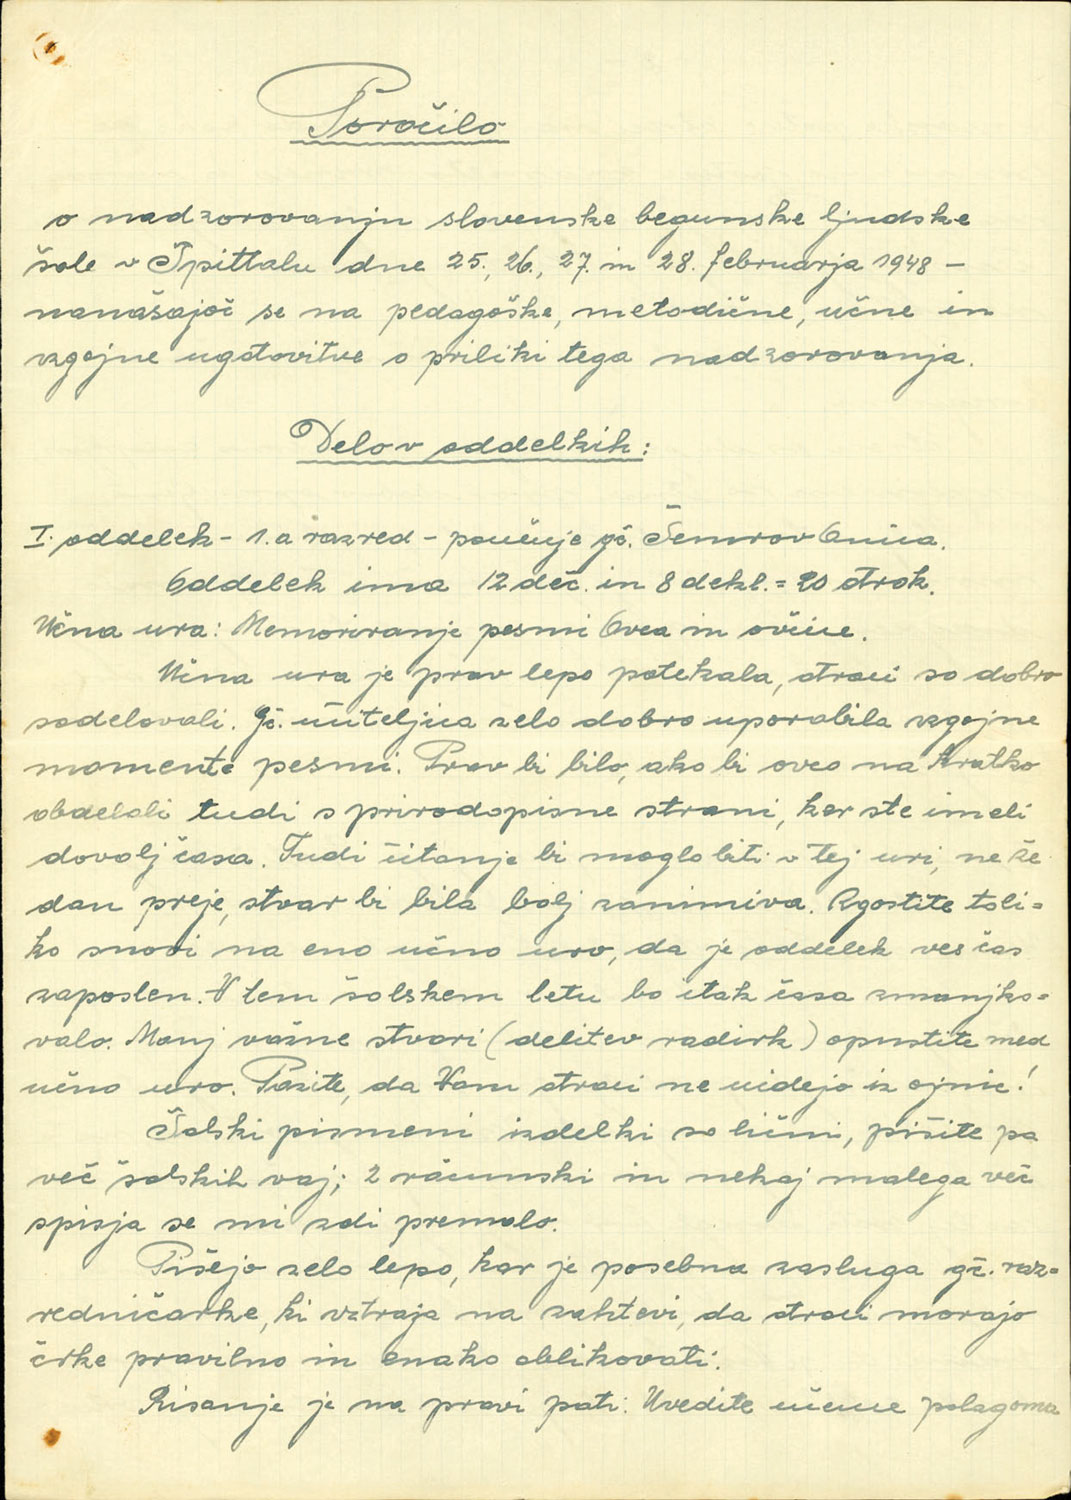 Poročilo
o nadzorovanju slovenske begunske ljudske
šole v Špittalu dne 25., 26., 27. in 28. februarja 1948 –
nanašajoč se na pedagoške, metodične, učne in
vzgojne ugotovitve o priliki tega nadzorovanja.
Delo v oddelkih:
I. oddelek – 1.a razred – poučuje gč. Šemrov Anica.
Oddelek ima 12 deč. in 8 dekl. = 20 otrok.
Učna ura: Memoriranje pesmi Ovca in ovčice.
Učna ura je prav lepo potekala, otroci so dobro
sodelovali. Gč. učiteljica zelo dobro uporabila vzgojne
momente pesmi. Prav bi bilo, ako bi ovco na kratko
obdelali tudi s prirodopisne strani, ker ste imeli
dovolj časa. Tudi čitanje bi moglo biti v tej uri, ne že
dan preje, stvar bi bila bolj zanimiva. Zgostite toli=
ko snovi na eno učno uro, da je oddelek ves čas
zaposlen. V tem šolskem letu bo itak časa zmanjko=
valo. Manj važne stvari (delitev radirk) opustite med
učno uro. Pazite, da Vam otroci ne uidejo iz ojnic!
Šolski pismeni izdelki so lični, pišite pa
več šolskih vaj; 2 računski in nekaj malega več
spisja se mi zdi premalo.
Pišejo zelo lepo, kar je posebna zasluga gč. raz=
redničarke, ki vztraja na zahtevi, da otroci morajo
črke pravilno in enako oblikovati.
Risanje je na pravi poti. Uvedite učence polagoma